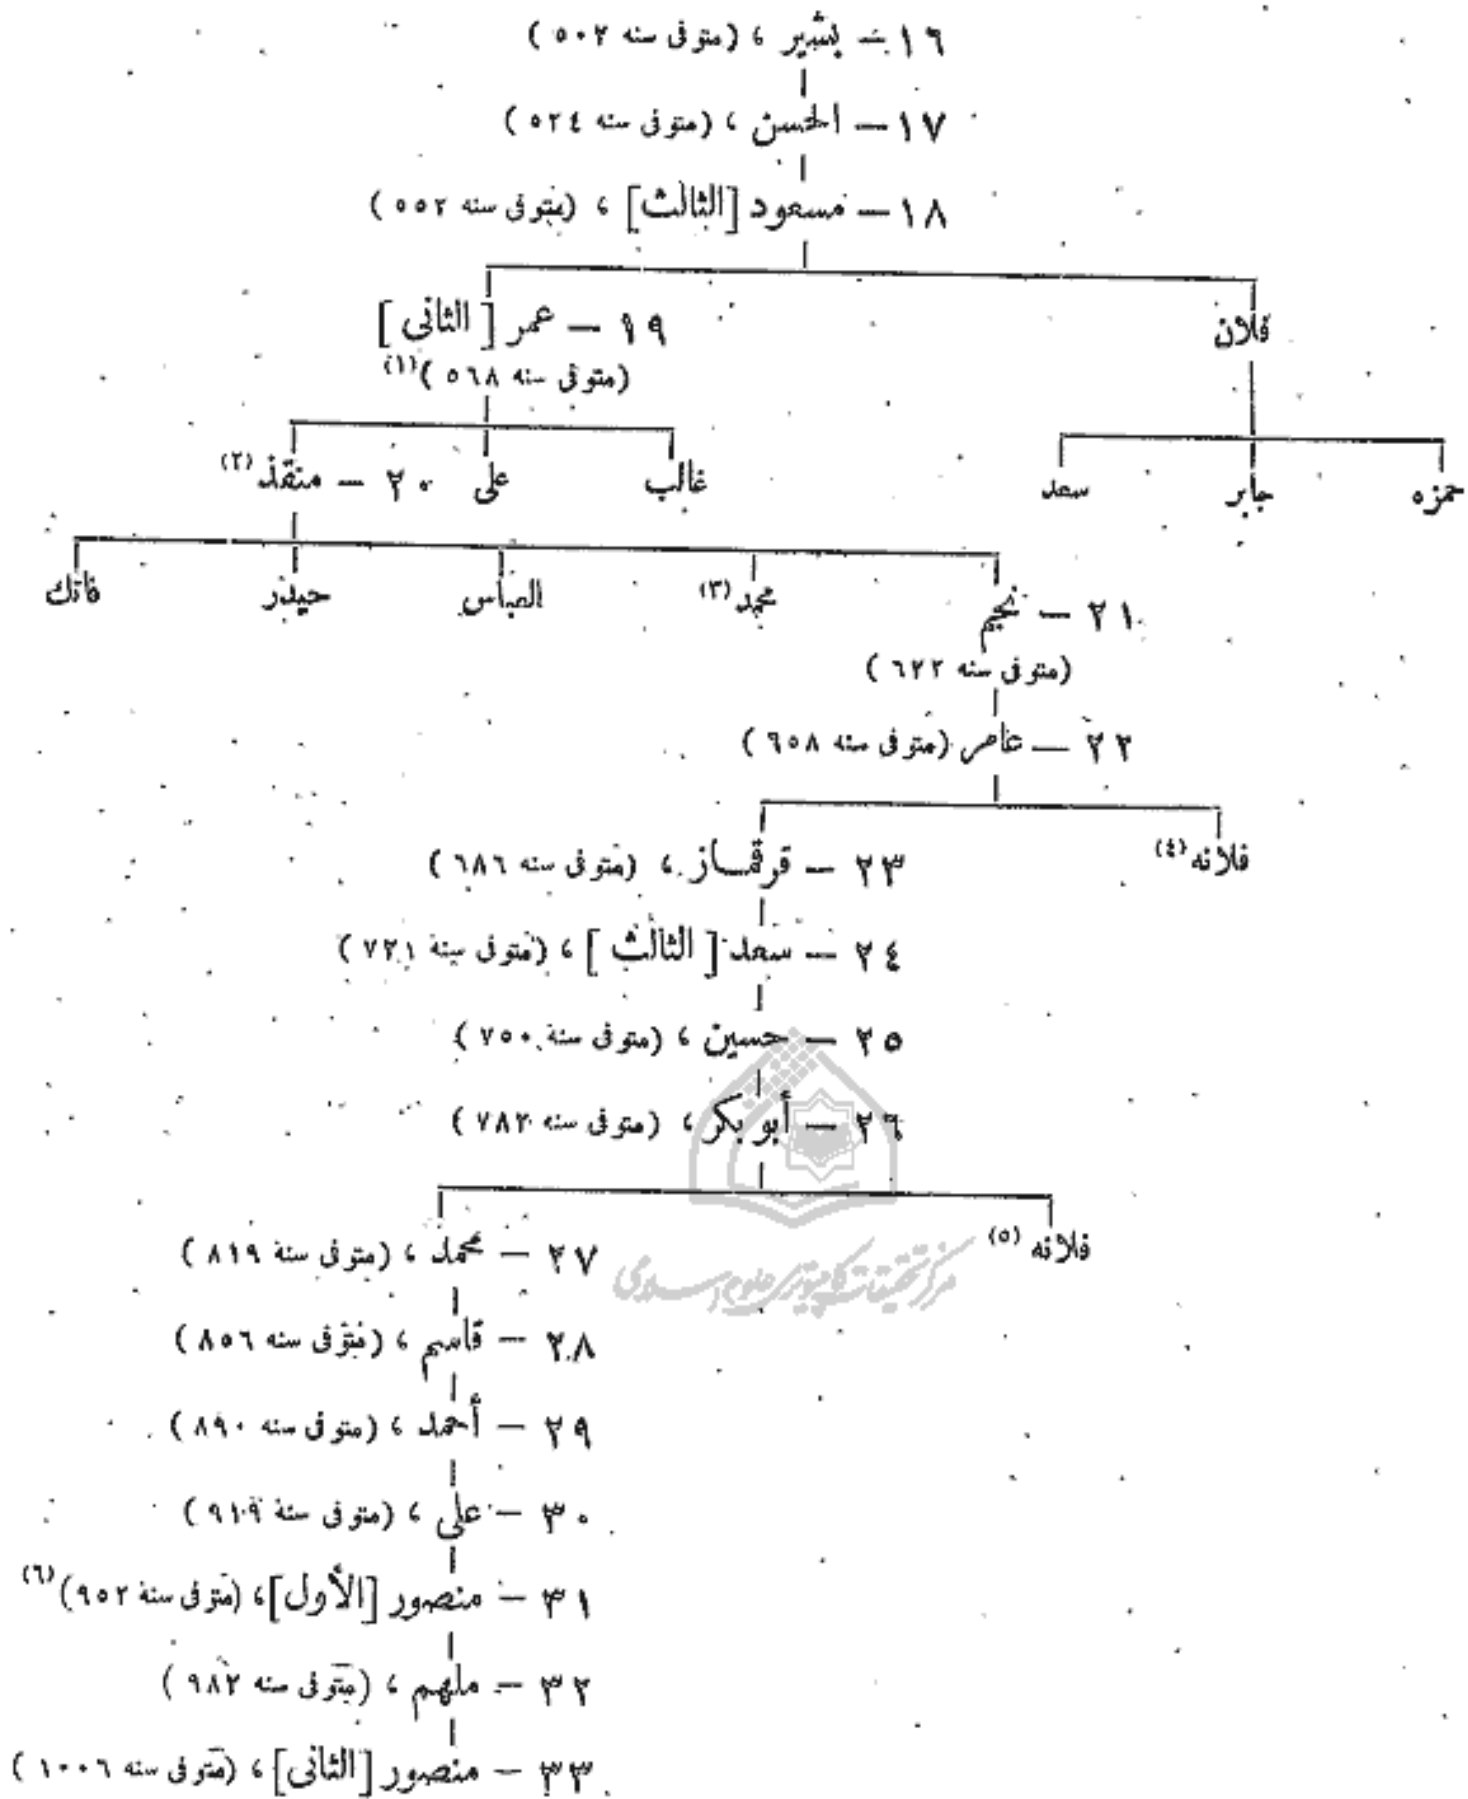 ١٦ – بشير ، (متوفى سنه ٥٠٢)
١٧ – الحسن ، (متوفى سنه ٥٢٤)
١٨ – مسعود [الثالث] ، (متوفى سنه ٥٥٢)
فلان
١٩ – عمر [الثانى]
(متوفى سنه ٥٦٨)(١)
حمزه جابر سعد
غالب على ٢٠ – منقذ(٢)
٢١ – نجيم محمد(٣) العباس حيدر فاتك
(متوفى سنه ٦٢٢)
٢٢ – عامر (متوفى سنه ٦٥٨)
فلانه(٤)
٢٣ – قرقماز ، (متوفى سنه ٦٨٦)
٢٤ – سعد [الثالث] ، (متوفى سنة ٧٢١)
٢٥ – حسين ، (متوفى سنة ٧٥٠)
٢٦ – أبو بكر ، (متوفى سنه ٧٨٢)
فلانه(٥)
٢٧ – محمد ، (متوفى سنة ٨١٩)
مركز تحقيقات كامپيوتری علوم اسلامی
٢٨ – قاسم ، (متوفى سنه ٨٥٦)
٢٩ – أحمد ، (متوفى سنه ٨٩٠)
٣٠ – على ، (متوفى سنة ٩١٩)
٣١ – منصور [الأول] ، (متوفى سنة ٩٥٢)(٦)
٣٢ – ملهم ، (متوفى سنه ٩٨٢)
٣٣ – منصور [الثانى] ، (متوفى سنه ١٠٠٦)